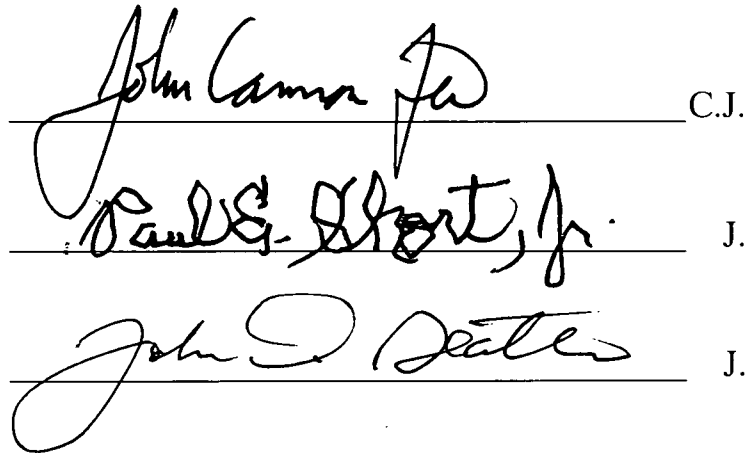 John Cannon Few C.J.
Paul E. Short, Jr. J.
John D Geathers J.